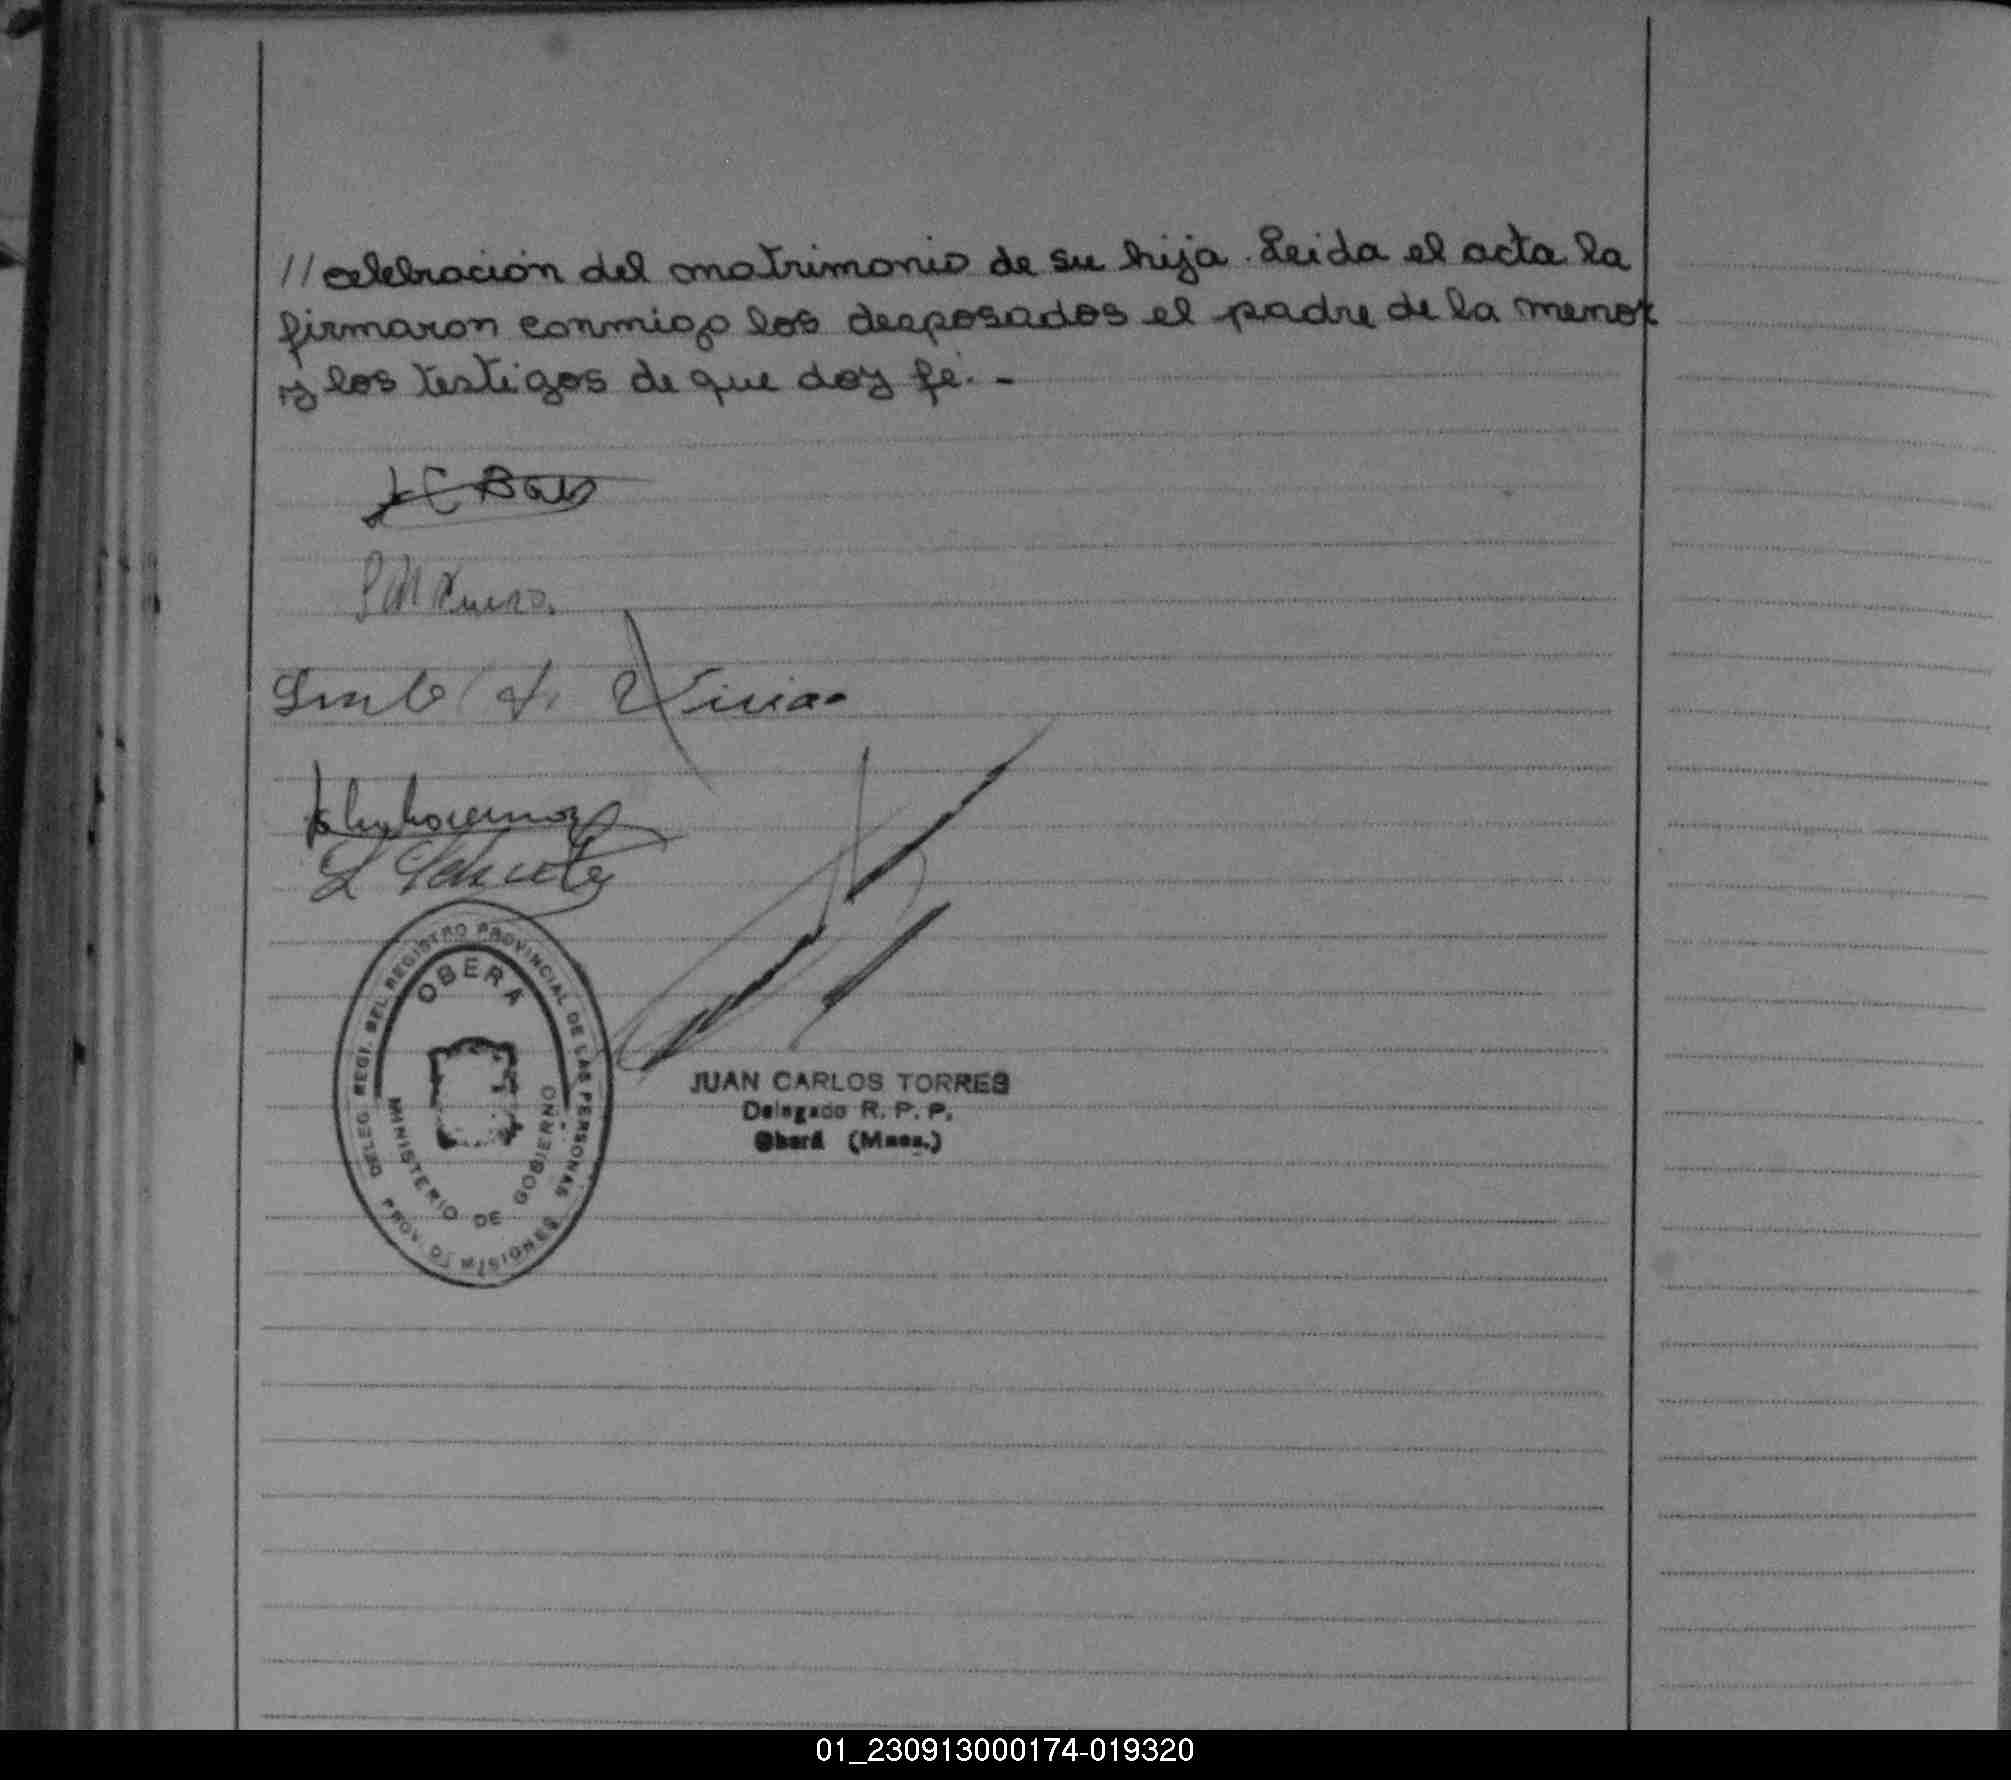 // celebración del matrimonio de su hija. Leida el acta la
firmaron conmigo los desposados el padre de la menor
y los testigos de que doy fé. -
L Schulz
DELEG. REGI. DEL REGISTRO PROVINCIAL DE LAS PERSONAS
OBERA
MINISTERIO DE GOBIERNO
PROV. DE MISIONES
JUAN CARLOS TORRES
Delegado R. P. P.
Oberá (Mnes.)
01_230913000174-019320